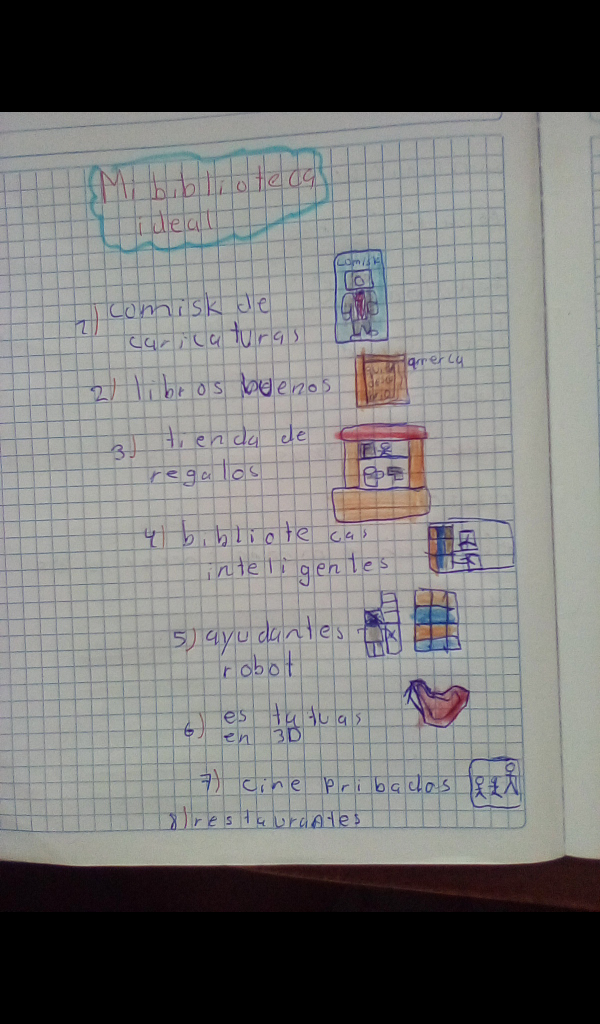 Mi biblioteca
ideal
comisk
1) comisk de
caricaturas
amerca
2) libros buenos
3) tienda de
regalos
4) bibliotecas
inteligentes
5) ayudantes
robot
6) estatuas
en 3D
7) cine pribados
8) restaurantes